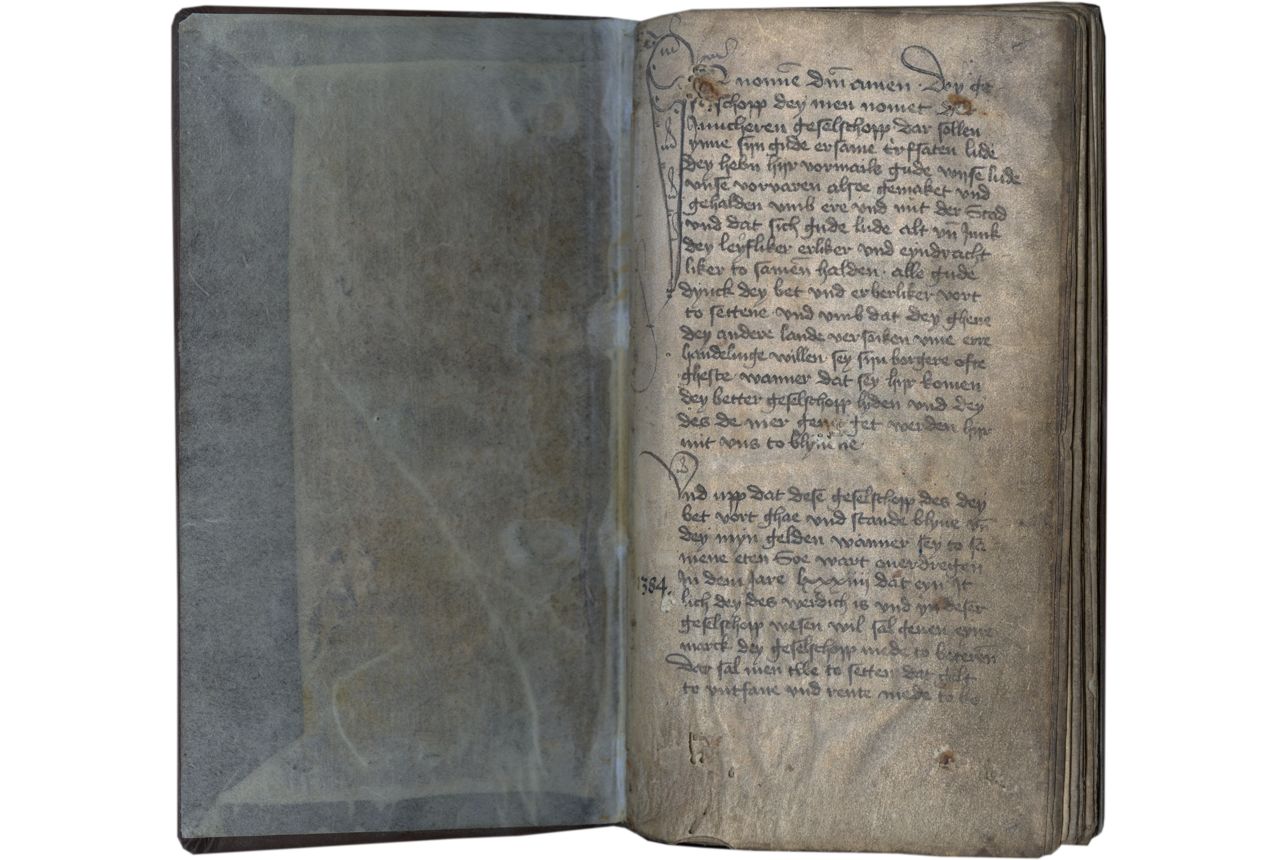 In nomine dm̄ amen Dey ge
selschopp dey men nomet
Junncheren geselschopp dar sollen
ynne syn gude ersame Erfsaten lude
dey hebn hijr vormails gude wijse lude
vnse vorvaren alsoe gemaket vnd
gehalden vmb ere vnd nut der Stad
vnd dat sich gude lude alt vn̄ Junk
dey leyfliker erliker vnd eyndracht
liker to samen halden alle gude
dynck dey bet vnd erberliker vort
to settene vnd vmb dat dey ghene
dey andere lande versoiken vme erre
handelinge willen sey syn borgere ofte
gheste wanner dat sey hijr komen
dey better geselschopp hyden vnd dey
des de mer get werden hijr
mit vns to blyuene
Vnd upp dat dese geselschopp des dey
bet vort ghae vnd stande blyue vn̄
dey myn gelden wanner sey to sa
mene eten Soe wart ouerdreigen
1384. In dem Jare lxxxiiij dat eyn it
lich dey des werdich is vnd yn deser
geselschopp wesen wil sal geuen eyne
marck dey geselschopp mede to beteren
Dar sal men tlle to setten dat gelt
to vntfane vnd rente mede to be